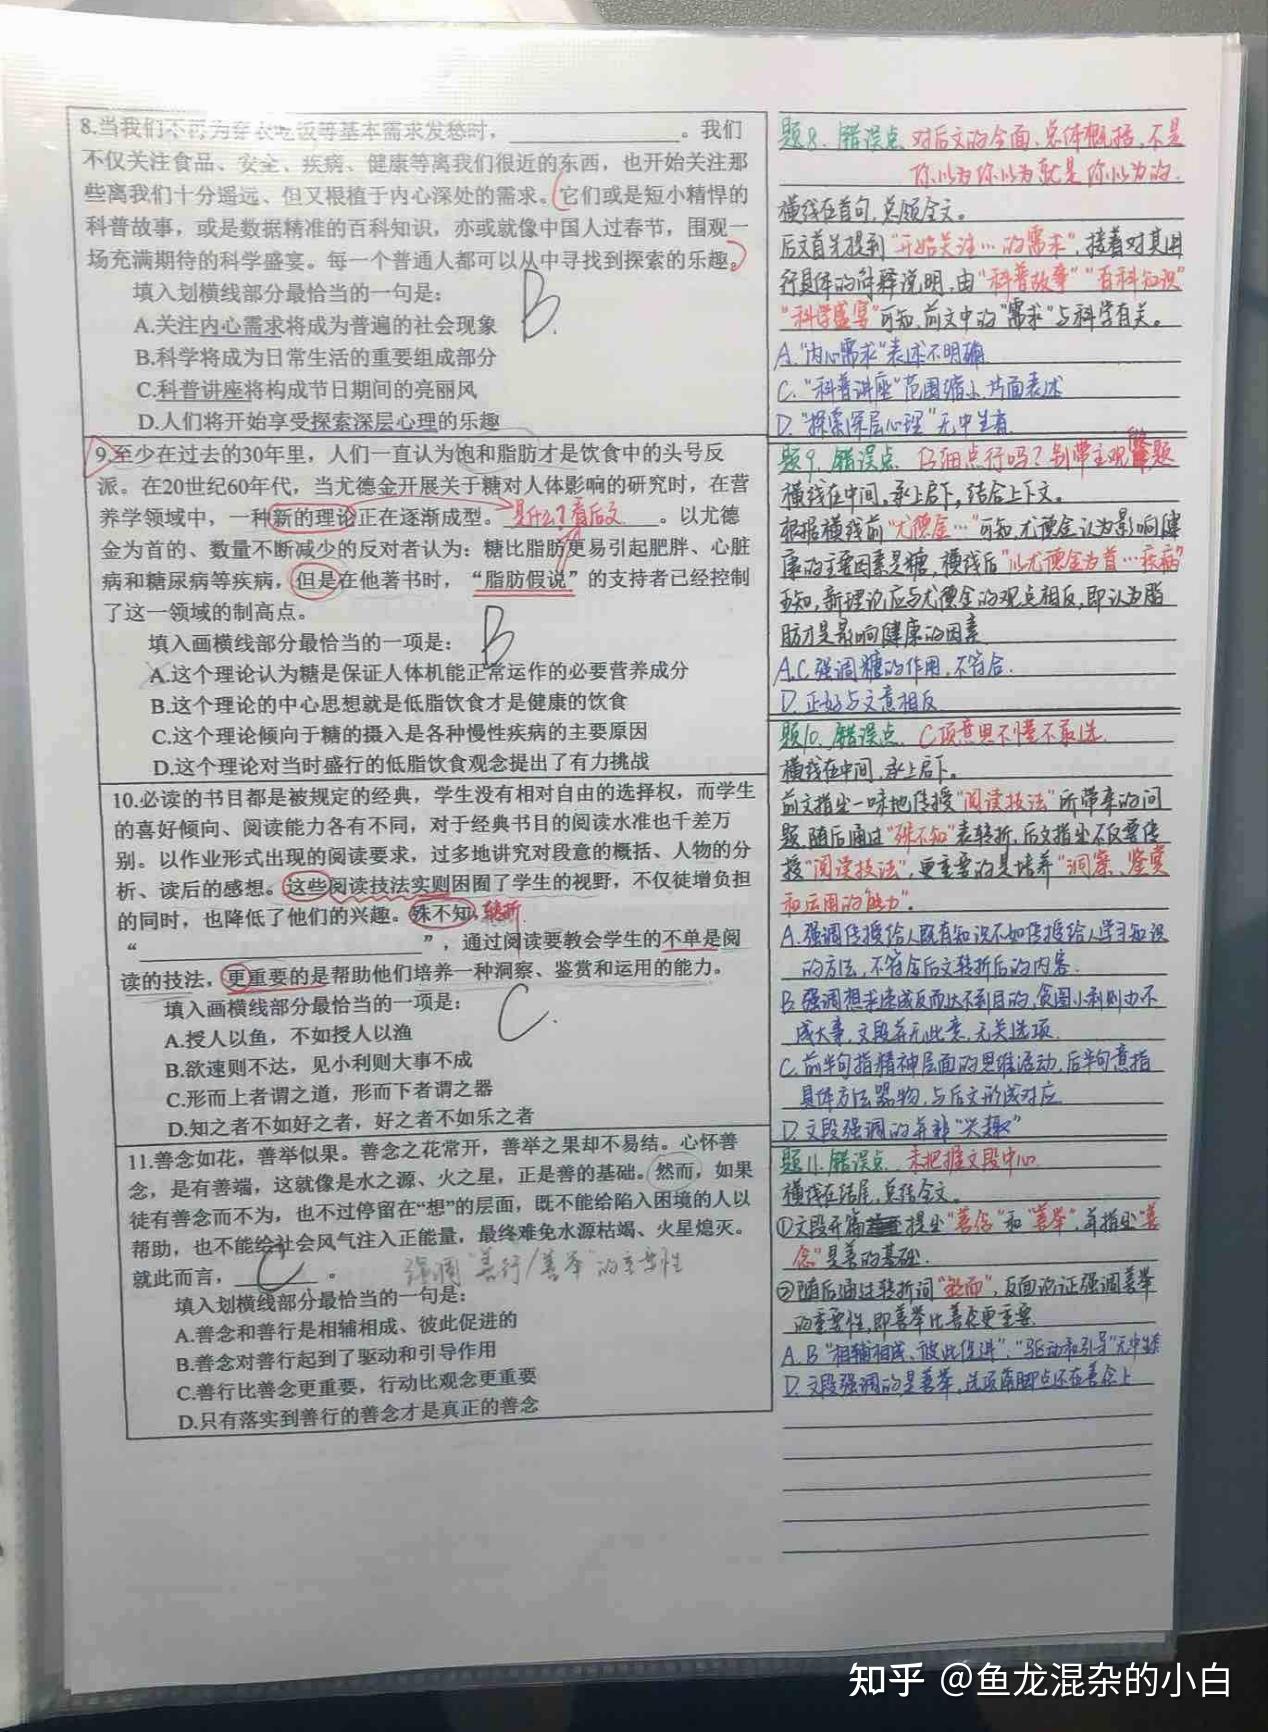 8.当我们不再为穿衣吃饭等基本需求发愁时，____________。我们
不仅关注食品、安全、疾病、健康等离我们很近的东西，也开始关注那
些离我们十分遥远、但又根植于内心深处的需求。它们或是短小精悍的
科普故事，或是数据精准的百科知识，亦或就像中国人过春节，围观一
场充满期待的科学盛宴。每一个普通人都可以从中寻找到探索的乐趣。
填入划横线部分最恰当的一句是：
B.
A.关注内心需求将成为普遍的社会现象
B.科学将成为日常生活的重要组成部分
C.科普讲座将构成节日期间的亮丽风
D.人们将开始享受探索深层心理的乐趣
9.至少在过去的30年里，人们一直认为饱和脂肪才是饮食中的头号反
派。在20世纪60年代，当尤德金开展关于糖对人体影响的研究时，在营
养学领域中，一种新的理论正在逐渐成型。____________。以尤德
是什么？看后文
金为首的、数量不断减少的反对者认为：糖比脂肪更易引起肥胖、心脏
病和糖尿病等疾病，但是在他著书时，“脂肪假说”的支持者已经控制
了这一领域的制高点。
填入画横线部分最恰当的一项是：
B
A.这个理论认为糖是保证人体机能正常运作的必要营养成分
B.这个理论的中心思想就是低脂饮食才是健康的饮食
C.这个理论倾向于糖的摄入是各种慢性疾病的主要原因
D.这个理论对当时盛行的低脂饮食观念提出了有力挑战
10.必读的书目都是被规定的经典，学生没有相对自由的选择权，而学生
的喜好倾向、阅读能力各有不同，对于经典书目的阅读水准也千差万
别。以作业形式出现的阅读要求，过多地讲究对段意的概括、人物的分
析、读后的感想。这些阅读技法实则困囿了学生的视野，不仅徒增负担
的同时，也降低了他们的兴趣。殊不知，转折
“____________”，通过阅读要教会学生的不单是阅
读的技法，更重要的是帮助他们培养一种洞察、鉴赏和运用的能力。
填入画横线部分最恰当的一项是：
C.
A.授人以鱼，不如授人以渔
B.欲速则不达，见小利则大事不成
C.形而上者谓之道，形而下者谓之器
D.知之者不如好之者，好之者不如乐之者
11.善念如花，善举似果。善念之花常开，善举之果却不易结。心怀善
念，是有善端，这就像是水之源、火之星，正是善的基础。然而，如果
徒有善念而不为，也不过停留在“想”的层面，既不能给陷入困境的人以
帮助，也不能给社会风气注入正能量，最终难免水源枯竭、火星熄灭。
就此而言，______。
C
强调“善行/善举”的重要性
填入划横线部分最恰当的一句是：
A.善念和善行是相辅相成、彼此促进的
B.善念对善行起到了驱动和引导作用
C.善行比善念更重要，行动比观念更重要
D.只有落实到善行的善念才是真正的善念
题8.错误点.对后文的全面、总体概括，不是
你以为你以为就是你以为的.
横线在首句，总领全文。
后文首先提到“开始关注…的需求”，接着对其进
行具体的解释说明，由“科普故事”“百科知识”
“科学盛宴”可知，前文中的“需求”与科学有关。
A.“内心需求”表述不明确
C.“科普讲座”范围缩小.片面表述
D.“探索深层心理”无中生有
题9.错误点.仔细点行吗？别带主观做题
横线在中间，承上启下，结合上下文。
根据横线前“尤德金…”可知，尤德金认为影响健
康的主要因素是糖，横线后“以尤德金为首…疾病”
可知，新理论应与尤德金的观点相反，即认为脂
肪才是影响健康的因素
A.C.强调糖的作用，不符合.
D.正好与文意相反
题10.错误点.C项意思不懂不敢选.
横线在中间，承上启下。
前文指出一味地传授“阅读技法”所带来的问
题.随后通过“殊不知”表转折，后文指出不仅要传
授“阅读技法”，更重要的是培养“洞察、鉴赏
和运用的能力”。
A.强调传授给人既有知识不如传授给人学习知识
的方法，不符合后文转折后的内容.
B.强调想求速成反而达不到目的，贪图小利则办不
成大事，文段并无此意，无关选项.
C.前半句指精神层面的思维活动，后半句意指
具体方法器物，与后文形成对应
D.文段强调的并非“兴趣”
题11.错误点.未把握文段中心
横线在结尾，总结全文。
①文段开篇提出“善念”和“善举”，并指出“善
念”是善的基础.
②随后通过转折词“然而”，反面论证强调善举
的重要性，即善举比善念更重要.
A.B“相辅相成、彼此促进”.“驱动和引导”无中生有
D.文段强调的是善举，选项落脚点还在善念上
知乎 @鱼龙混杂的小白